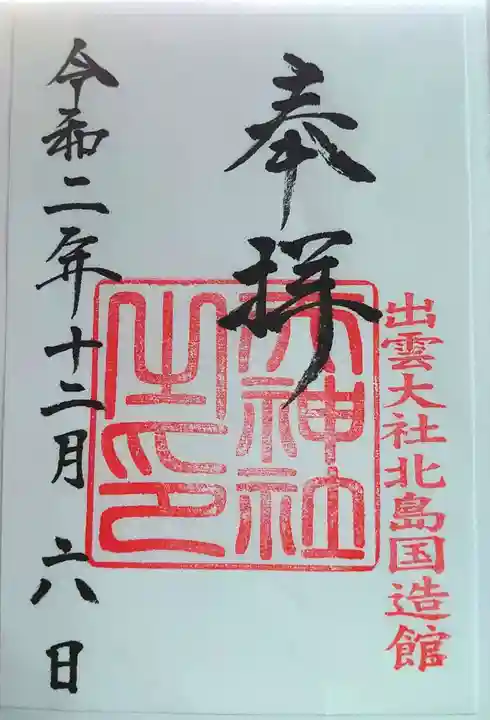 出雲大社北島国造館
奉拝
大神社
之印
令和二年十二月六日